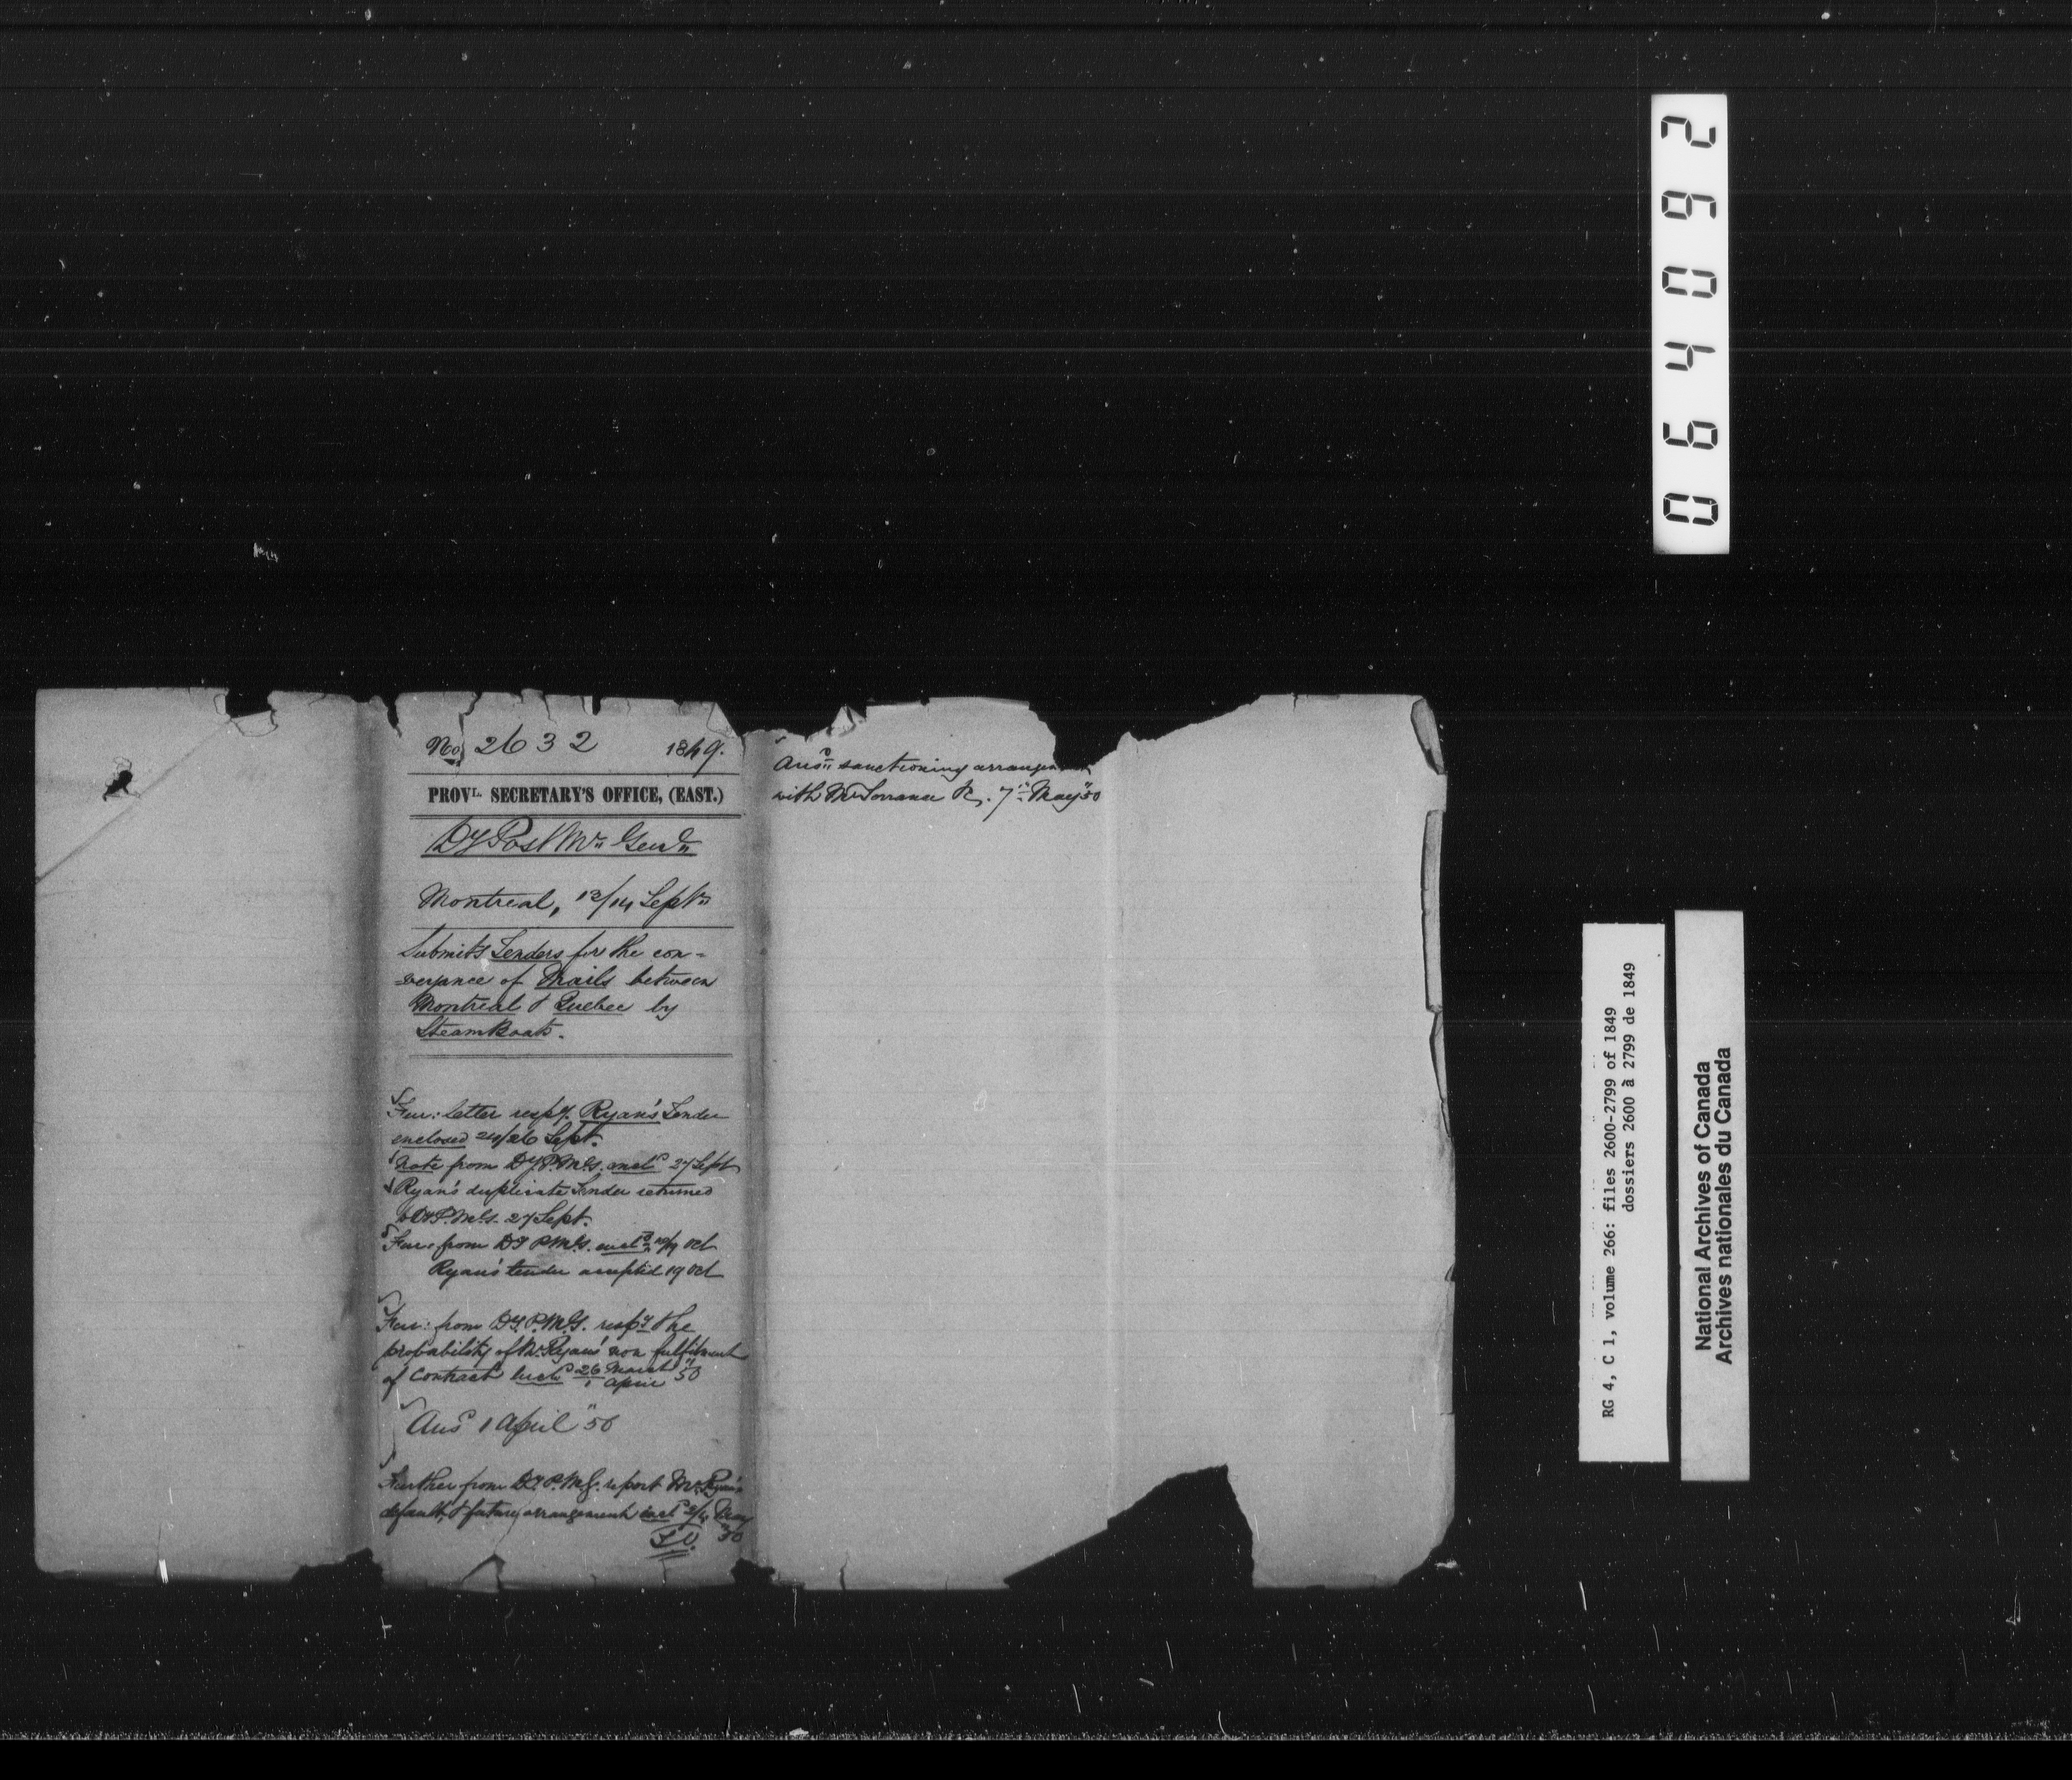 No. 2632 1849.
PROVL. SECRETARY'S OFFICE, (EAST.)
Dy Post Mr. Genl.
Montreal, 13/14 Septr
Submits Tenders for the con-
veyance of Mails between
Montreal & Quebec by
SteamBoats.
Fur: letter respg. Ryan's Tender
enclosed 24/26 Sept.
Note from Dy. P.M.G. encld 27 Sept
Ryan's duplicate Tender returned
to Dy P.M.G. 27 Sept.
Fur: from Dy P.M.G. encld Oct
Ryan's tender accepted 19 Oct
Fur: from Dy. P.M.G. respg the
probability of Mr. Ryan's non fulfilment
of Contract encld 26 March / 1 April "50
Ansd 1 April "50
Further from Dy. P.M.G. report Mr. Ryan's
default, & future arrangement encld 2/4 May
"50
T.O.
Ansd sanctioning arrangement
with Mr Torrance &c. 7th May "50
064092
RG 4, C 1, volume 266: files 2600-2799 of 1849
dossiers 2600 à 2799 de 1849
National Archives of Canada
Archives nationales du Canada